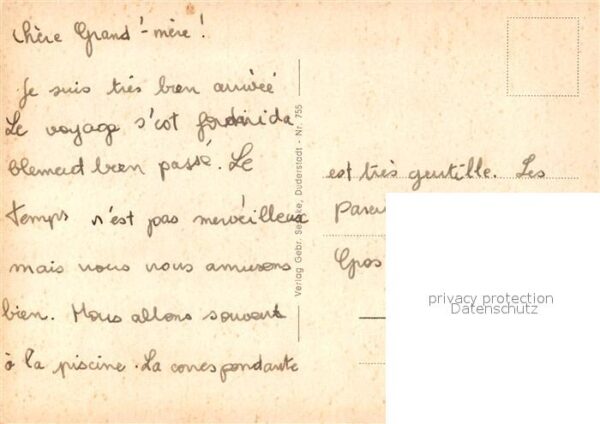 Chère Grand'-mère !
Je suis très bien arrivée
Le voyage s'est formida
blement bien passé. Le
temps n'est pas merveilleux
mais nous nous amusons
bien. Nous allons souvent
à la piscine. La correspondante
est très gentille. Les
Paren
Gros
Verlag Gebr. Duderstadt - Nr. 755
privacy protection
Datenschutz